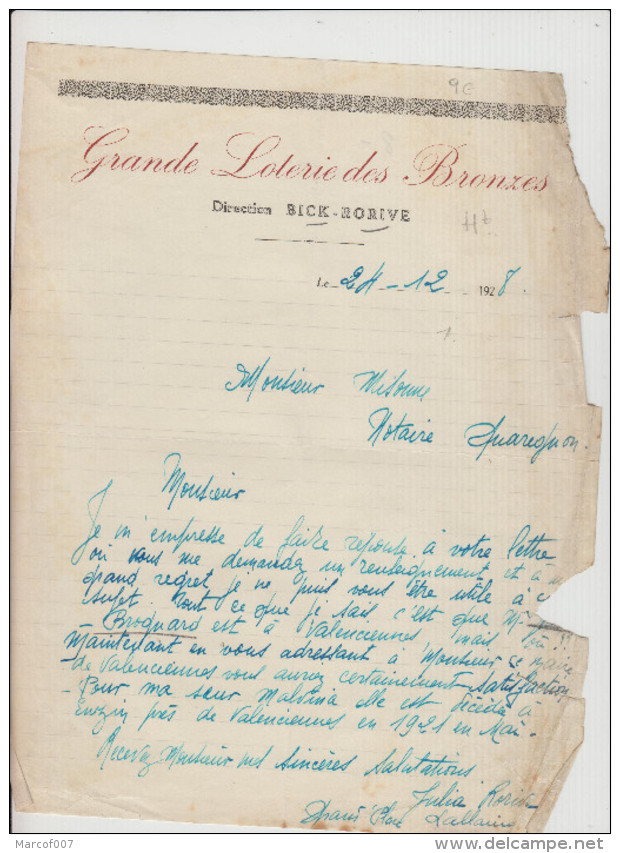 9c
Grande Loterie des Bronzes
Direction BICK-RORIVE
Ht
Le 24-12 1928.
1.
Monsieur Misonne
Notaire Quaregnon.
Monsieur
Je m'empresse de faire reponse à votre lettre
où vous me demandez un renseignement et à
grand regret je ne puis vous être utile à
sujet. Tout ce que je sais c'est que
Broquard est à Valenciennes, mais où
Maintenant en vous adressant à Monsieur le maire
de Valenciennes vous aurez certainement satisfaction
- Pour ma seur Malvina elle est décédé à
près de Valenciennes en 1921 en Mai.
Recevez Monsieur mes sincères salutations
Julia Rorive
Grand' Place Lallaing
Marcof007
DELCAMPE.NET